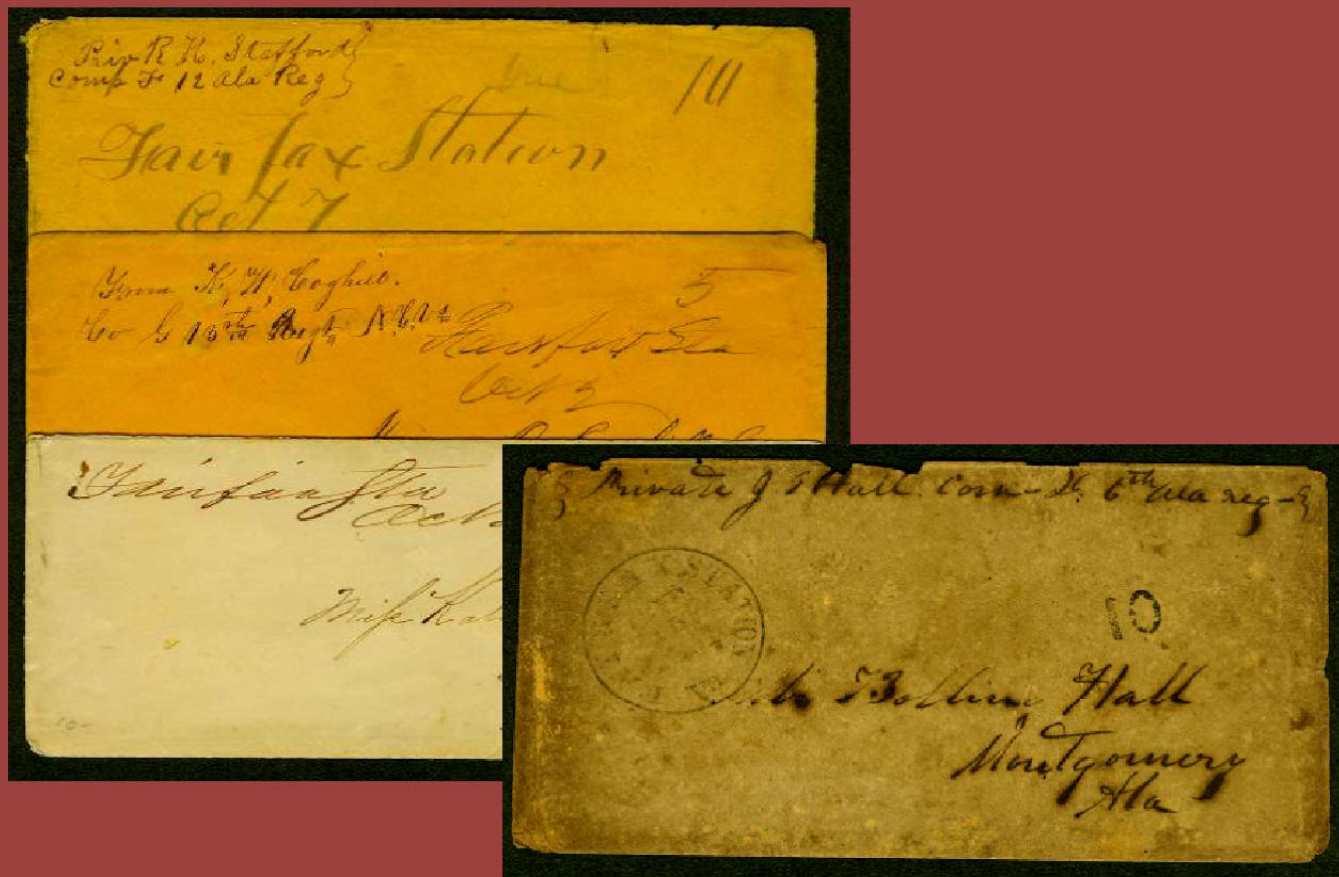 Priv R H. Stafford
Comp F 12 Ala Reg
10
Fairfax Station
Oct 7
From K. W. Coghill.
Co G Regt
5
Fairfax Sta
Oct 2
Fairfax Sta
Oct
Miss
Private J E Hall. Com- 6th Ala reg-
STATION
10
Bolling Hall
Montgomery
Ala